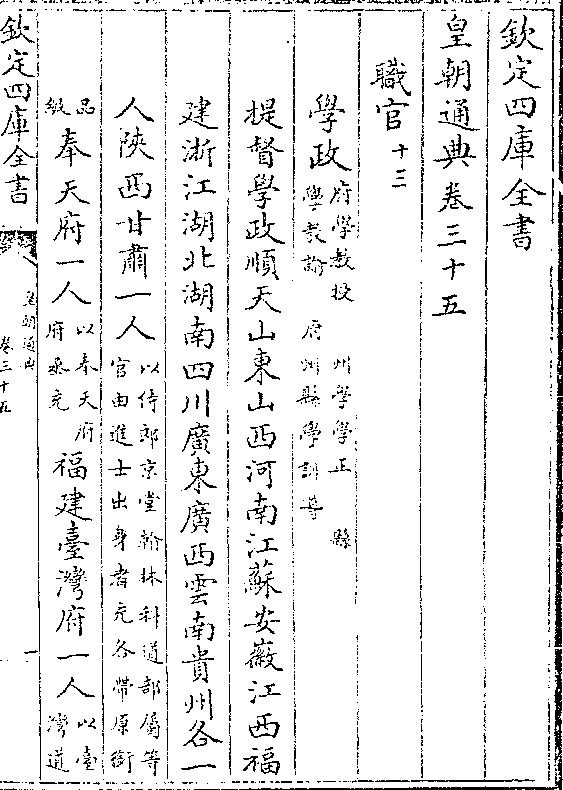 欽定四庫全書
皇朝通典卷三十五
職官十三
學政府學教授 州學學正 縣
學教諭 府州縣學訓導
提督學政順天山東山西河南江蘇安徽江西福
建浙江湖北湖南四川廣東廣西雲南貴州各一
人陜西甘肅一人以侍郎京堂翰林科道部屬等
官由進士出身者充各帶原銜
品級奉天府一人以奉天府
府丞充福建臺灣府一人以臺
灣道
欽定四庫全書
皇朝通典
卷三十五
一